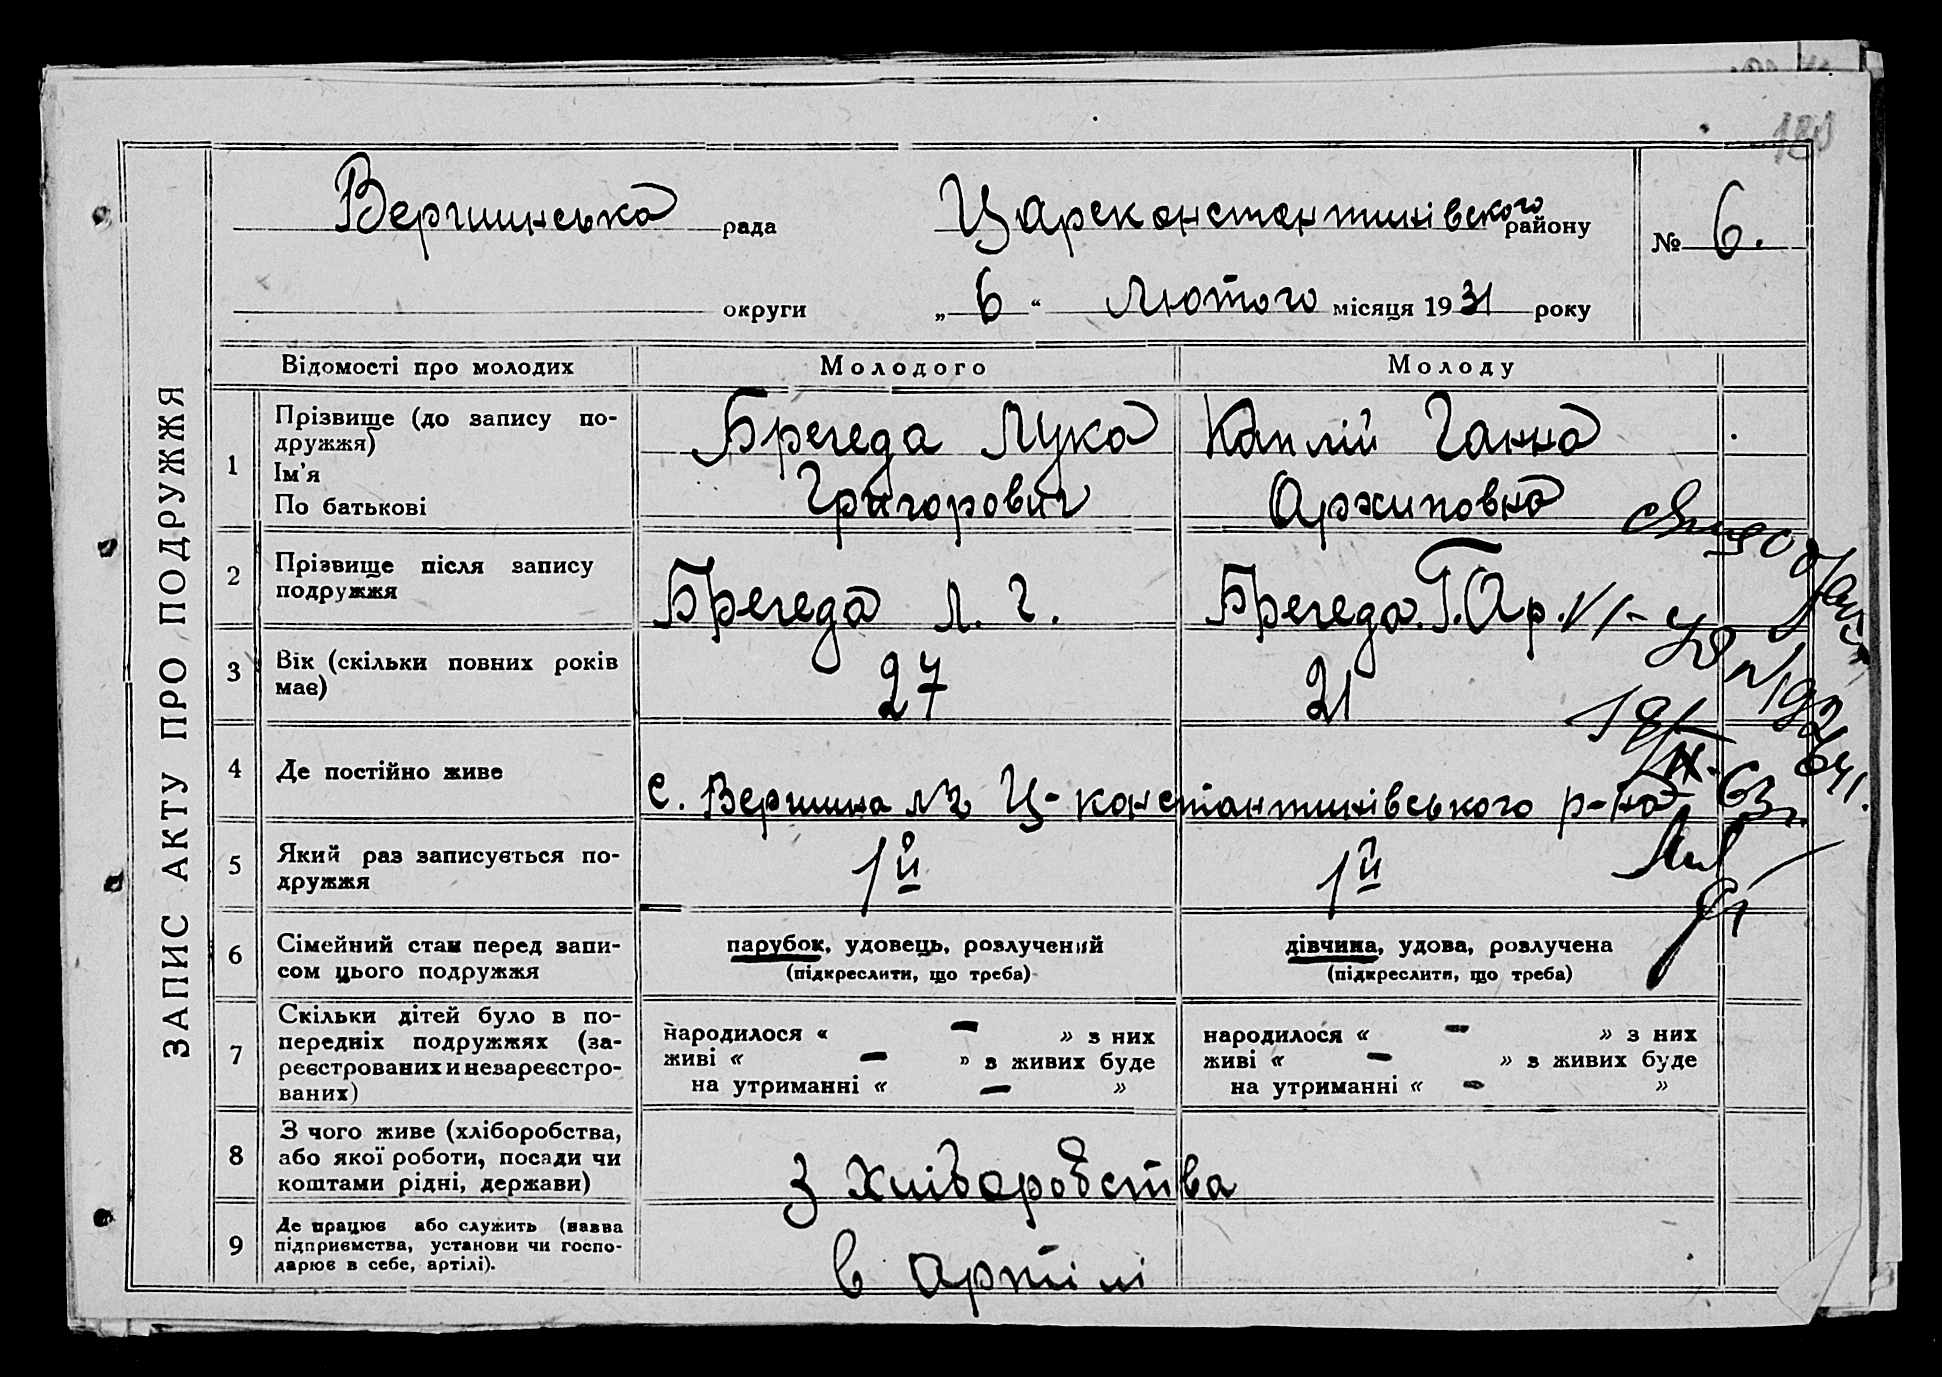 Вершинська рада Цареконстантинівського району № 6.
округи „6“ Лютого місяця 1931 року
ЗАПИС АКТУ ПРО ПОДРУЖЖЯ
Відомості про молодих Молодого Молоду
1 Прізвище (до запису по-
дружжя)
Ім'я
По батькові
Брегеда Лука
Григорович
Каплій Ганна
Архиповна
2 Прізвище після запису
подружжя
Брегеда Л. Г.
Брегеда. Г. Ар.
3 Вік (скільки повних років
має)
27
21
4 Де постійно живе
с. Вершина Ц-константинівського р-на
5 Який раз записується по-
дружжя
1й
1й
6 Сімейний стан перед запи-
сом цього подружжя
парубок, удовець, розлучений
(підкреслити, що треба)
дівчина, удова, розлучена
(підкреслити, що треба)
7 Скільки дітей було в по-
передніх подружжях (за-
реєстрованих и незареєстро-
ваних)
народилося « — » з них
живі « — » з живих буде
на утриманні « — »
народилося « — » з них
живі « — » з живих буде
на утриманні « — »
8 З чого живе (хліборобства,
або якої роботи, посади чи
коштами рідні, держави)
З хліборобства
9 Де працює або служить (назва
підприємства, установи чи госпо-
дарює в себе, артілі).
в артілі